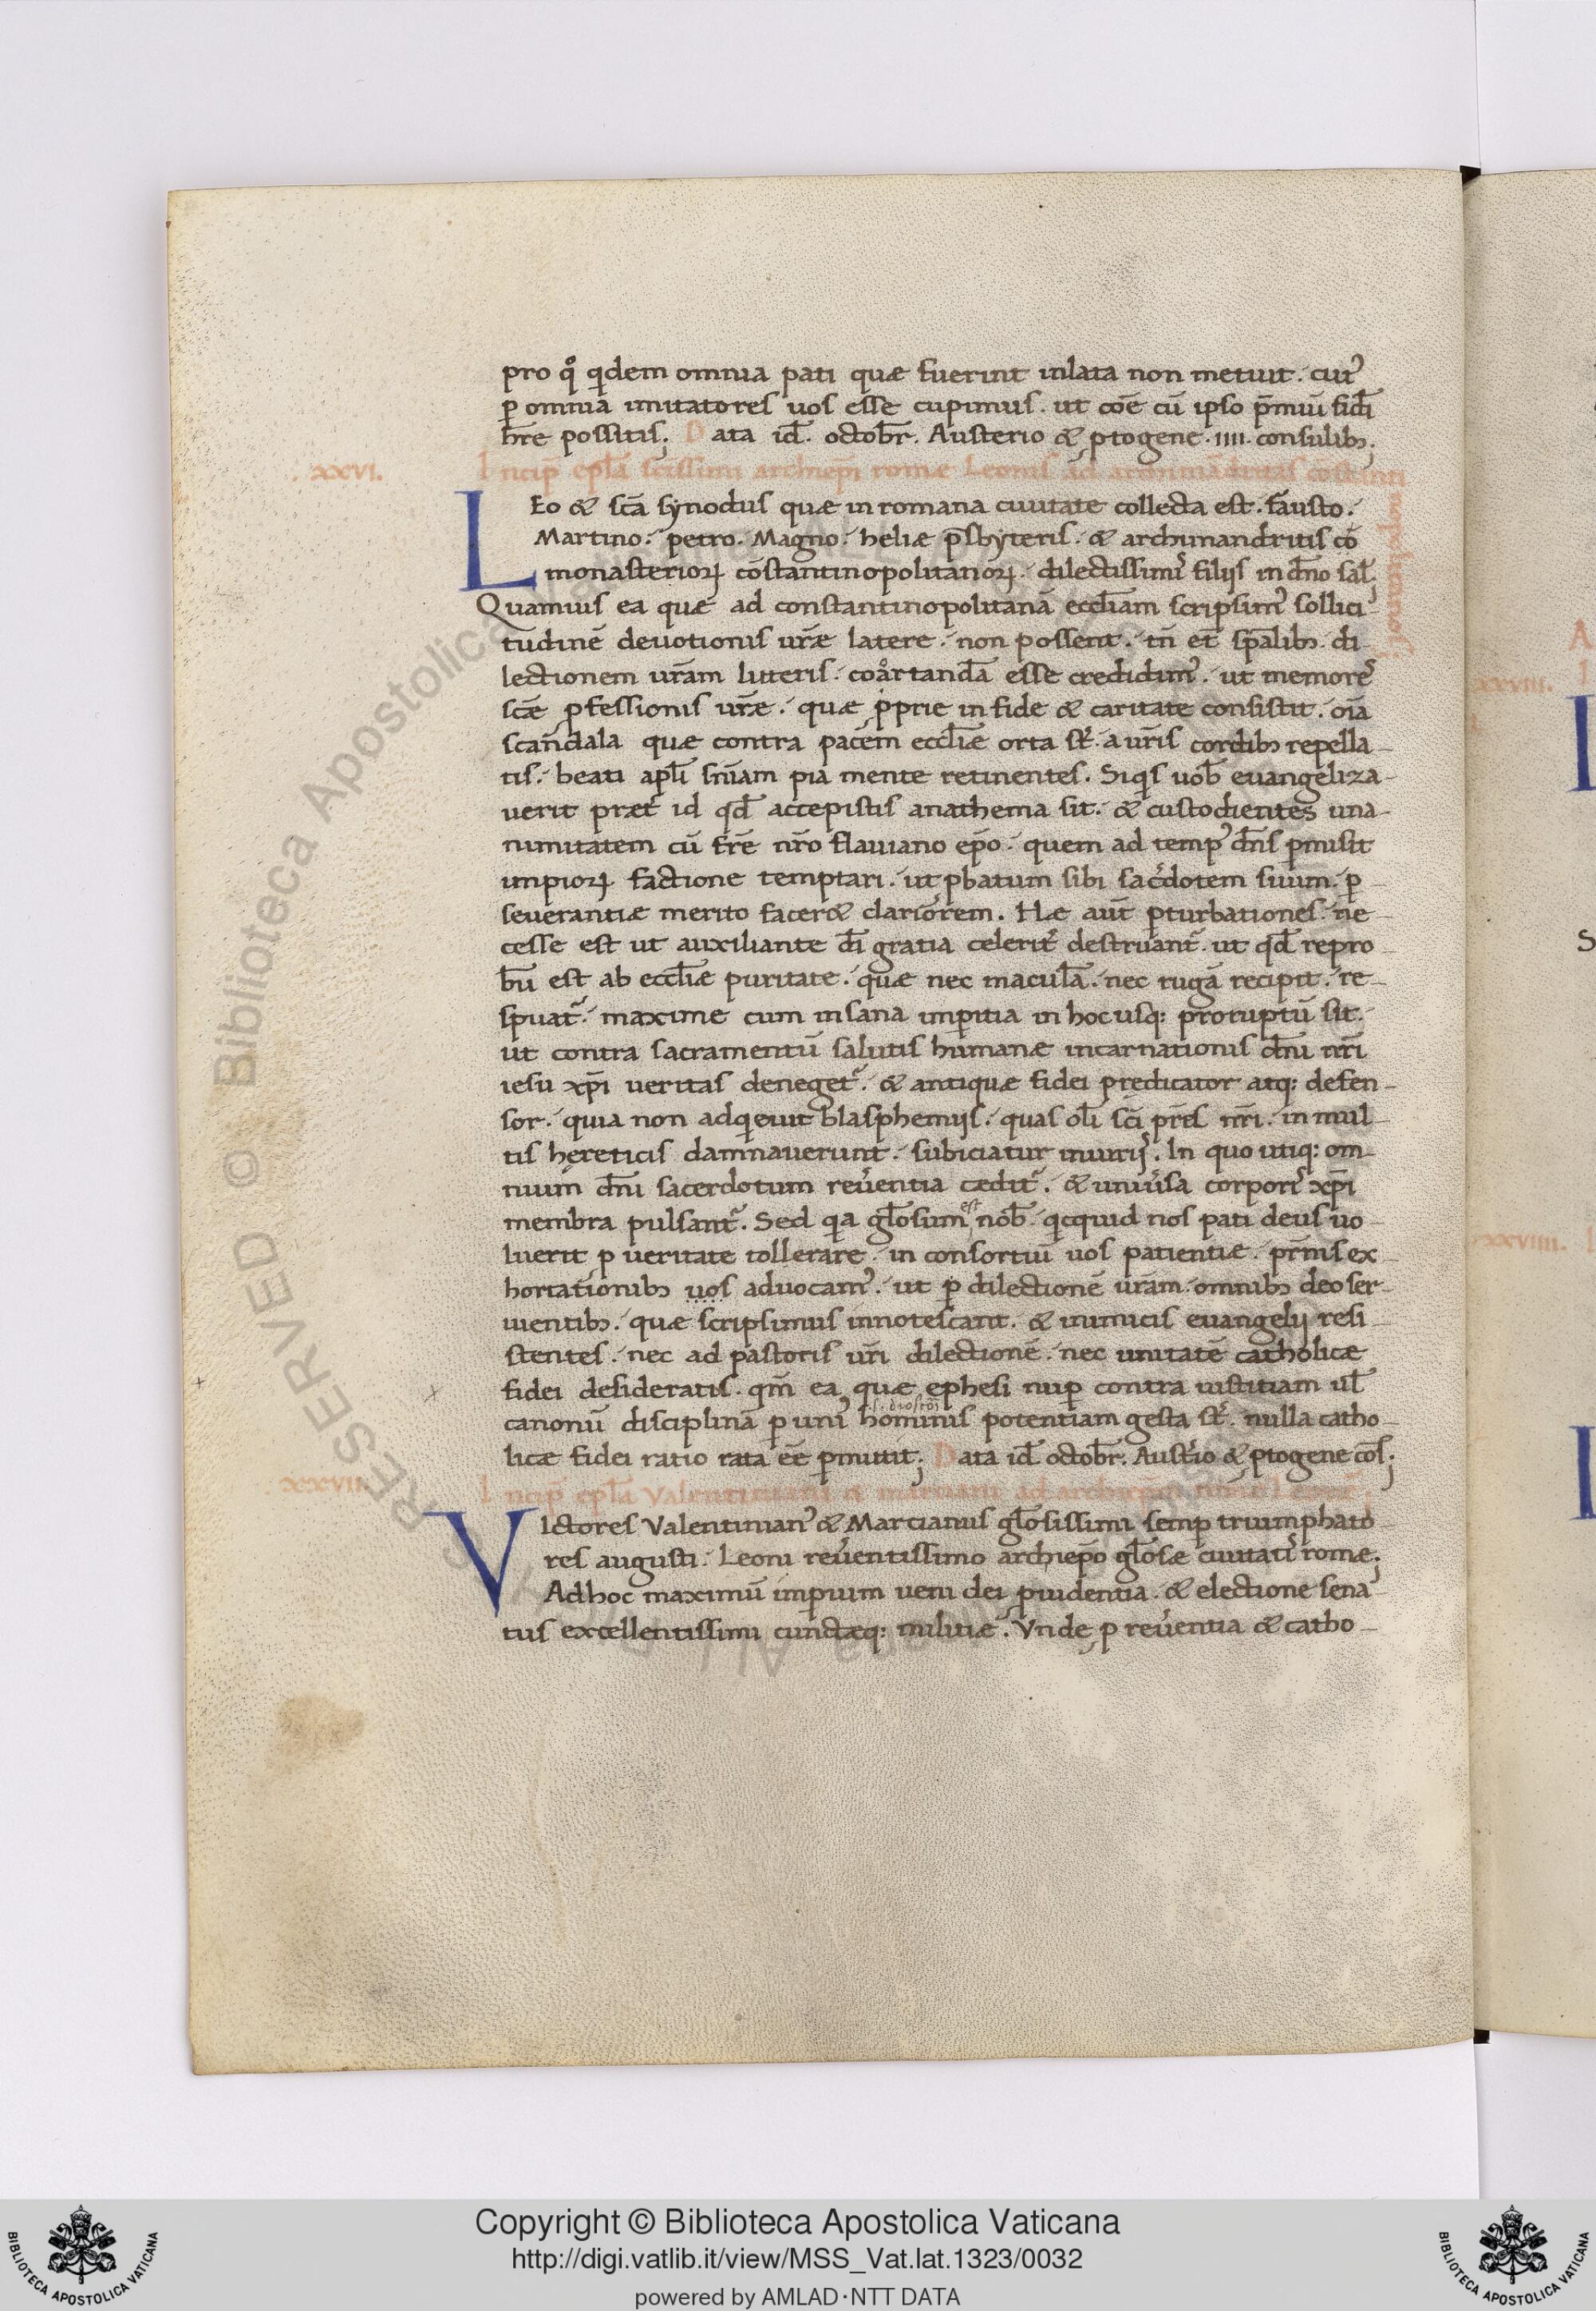 pro qͦ qdem omnia pati quæ fuerint inlata non metuit. cuiꝰ
ꝑ omnia imitatores uos esse cupimus. ut coē cū ipso p̄miū fidī
hr̄e possitis; Data id̄. octobr̄. Austerio & ꝓtogene .IIII. consulibꝫ.
.XXVI.
Incip̄ epl̄a sc̄issimi archiep̄i romæ Leonis ad archimādritas cōstanti
nopolitanos;
LEo & sc̄a synodus quæ in romana ciuitate collecta est. fausto.
Martino. petro. Magno. heliæ p̄sbyteris. & archimandritis cō
monasterioꝝ cōstantinopolitanoꝝ. dilectissimis filijs in dn̄o sal̄;
Quamuis ea quæ ad constantinopolitanā ecclīam scripsimꝰ sollici
tudinē deuotionis ur̄æ latere. non possent. tn̄ et̄ sp̄alibꝫ di
lectionem ur̄am litteris. coartandā esse credidimꝰ. ut memores
sc̄æ ꝓfessionis ur̄æ. quæ ꝓprie in fide & caritate consistit. oīa
scandala quæ contra pacem ecclīæ orta st̄. a ur̄is cordibꝫ repella
tis. beati apl̄i sn̄iam pia mente retinentes. Siqis uob̄ euangeliza
uerit præt̄ id qd̄ accepistis anathema sit. & custodientes una
nimitatem cū fr̄e nr̄o flauiano ep̄o. quem ad tempꝰ dn̄s ꝑmisit
impioꝝ factione temptari. ut ꝓbatum sibi sac̄dotem suum. ꝑ
seuerantiæ merito facer& clariorem. Hæ aut̄ ꝑturbationes. ne
cesse est ut auxiliante dī gratia celerit̄ destruant̄. ut qd̄ repro
bū est ab ecclīæ puritate. quæ nec maculā. nec rugā recipit. re
spuat̄. maxime cum insana imꝑitia in hoc usq: proruptū sit.
ut contra sacramentū salutis humanæ incarnationis dn̄i nr̄i
iesu xp̄i ueritas deneget̄. & antiquæ fidei prędicator atq: defen
sor. quia non adqeuit blasphemijs. quas olī sc̄i pr̄es nr̄i. in mul
tis hęreticis damnauerunt. subiciatur iniurijs. In quo utiq: om
nium dn̄i sacerdotum reu̓entia cædit̄. & uniu̓sa corporis xp̄i
membra pulsant̄. Sed qa gl̄osum est nob̄. qicquid nos pati deus uo
luerit ꝓ ueritate tollerare. in consortiū uos patientiæ. pr̄nis ex
hortationibꝫ uos aduocamꝰ. ut ꝑ dilectionē ur̄am. omnibꝫ deo ser
uientibꝫ. quæ scripsimus innotescant. & inimicis euangelij resi
stentes. nec ad pastoris ur̄i dilectionē. nec unitatē catholicæ
fidei desideratis. qm̄ ea quæ ephesi nuꝑ contra iustitiam ul̄
canonū disciplinā ꝑ uniꝰ hominis potentiam gesta st̄. nulla catho
licæ fidei ratio rata eē ꝑmittit; Data id̄ octobr̄. Aust̄io & ꝓtogene cōs̄;
.XXVII.
Incip̄ epl̄a Valentiniani & martiani ad archiep̄m
VIctores Valentinianꝰ & Marcianus gl̄osissimi semꝑ triumphato
res augusti. Leoni reu̓entissimo archiep̄o gl̄osæ ciuitatis romæ;
Ad hoc maximū imꝑium ueni dei ꝓuidentia. & electione sena
tus excellentissimi cunctæq: militiæ. Vnde ꝓ reu̓entia & catho
Copyright © Biblioteca Apostolica Vaticana
http://digi.vatlib.it/view/MSS_Vat.lat.1323/0032
powered by AMLAD·NTT DATA